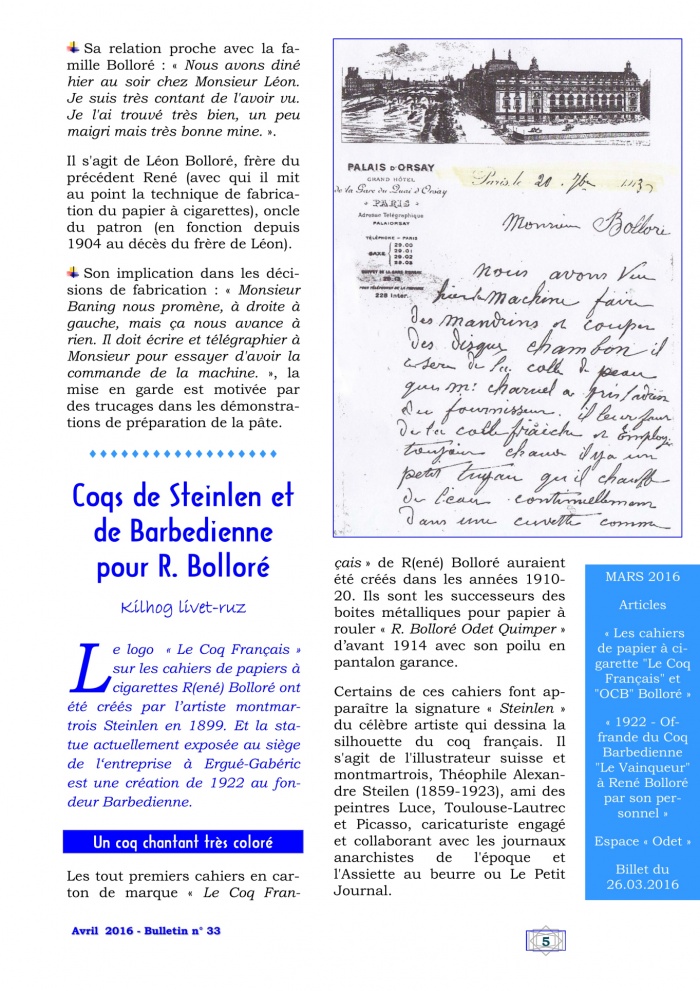 Sa relation proche avec la fa-
mille Bolloré : « Nous avons diné
hier au soir chez Monsieur Léon.
Je suis très contant de l'avoir vu.
Je l'ai trouvé très bien, un peu
maigri mais très bonne mine. ».
Il s'agit de Léon Bolloré, frère du
précédent René (avec qui il mit
au point la technique de fabrica-
tion du papier à cigarettes), oncle
du patron (en fonction depuis
1904 au décès du frère de Léon).
Son implication dans les déci-
sions de fabrication : « Monsieur
Baning nous promène, à droite à
gauche, mais ça nous avance à
rien. Il doit écrire et télégraphier à
Monsieur pour essayer d'avoir la
commande de la machine. », la
mise en garde est motivée par
des trucages dans les démonstra-
tions de préparation de la pâte.
Coqs de Steinlen et
de Barbedienne
pour R. Bolloré
Kilhog livet-ruz
Le logo « Le Coq Français »
sur les cahiers de papiers à
cigarettes R(ené) Bolloré ont
été créés par l'artiste montmar-
trois Steinlen en 1899. Et la sta-
tue actuellement exposée au siège
de l'entreprise à Ergué-Gabéric
est une création de 1922 au fon-
deur Barbedienne.
Un coq chantant très coloré
Les tout premiers cahiers en car-
ton de marque « Le Coq Fran-
PALAIS D'ORSAY
GRAND HÔTEL
de la Gare du Quai d'Orsay
PARIS
Adresse Télégraphique
PALAIORSAY
TÉLÉPHONE - PARIS
SAXE
29.00
29.01
29.02
228 Inter.
Paris le 20
Monsieur Bolloré
nous avons vu
hier la Machine faire
des mandrins et couper
des disque chambon il
de la colle de peau
que mr charuel a
du fournisseur. il leur faut
de la colle fraîche et
toujour chaud il y a un
petit tuyau qu'il chauffe
de l'eau continuellement
dans une cuvette comme
çais » de R(ené) Bolloré auraient
été créés dans les années 1910-
20. Ils sont les successeurs des
boites métalliques pour papier à
rouler « R. Bolloré Odet Quimper »
d'avant 1914 avec son poilu en
pantalon garance.
Certains de ces cahiers font ap-
paraître la signature « Steinlen »
du célèbre artiste qui dessina la
silhouette du coq français. Il
s'agit de l'illustrateur suisse et
montmartrois, Théophile Alexan-
dre Steilen (1859-1923), ami des
peintres Luce, Toulouse-Lautrec
et Picasso, caricaturiste engagé
et collaborant avec les journaux
anarchistes de l'époque et
l'Assiette au beurre ou Le Petit
Journal.
MARS 2016
Articles
« Les cahiers
de papier à ci-
garette "Le Coq
Français" et
"OCB" Bolloré »
« 1922 - Of-
frande du Coq
Barbedienne
"Le Vainqueur"
à René Bolloré
par son per-
sonnel »
Espace « Odet »
Billet du
26.03.2016
Avril 2016 - Bulletin n° 33
5